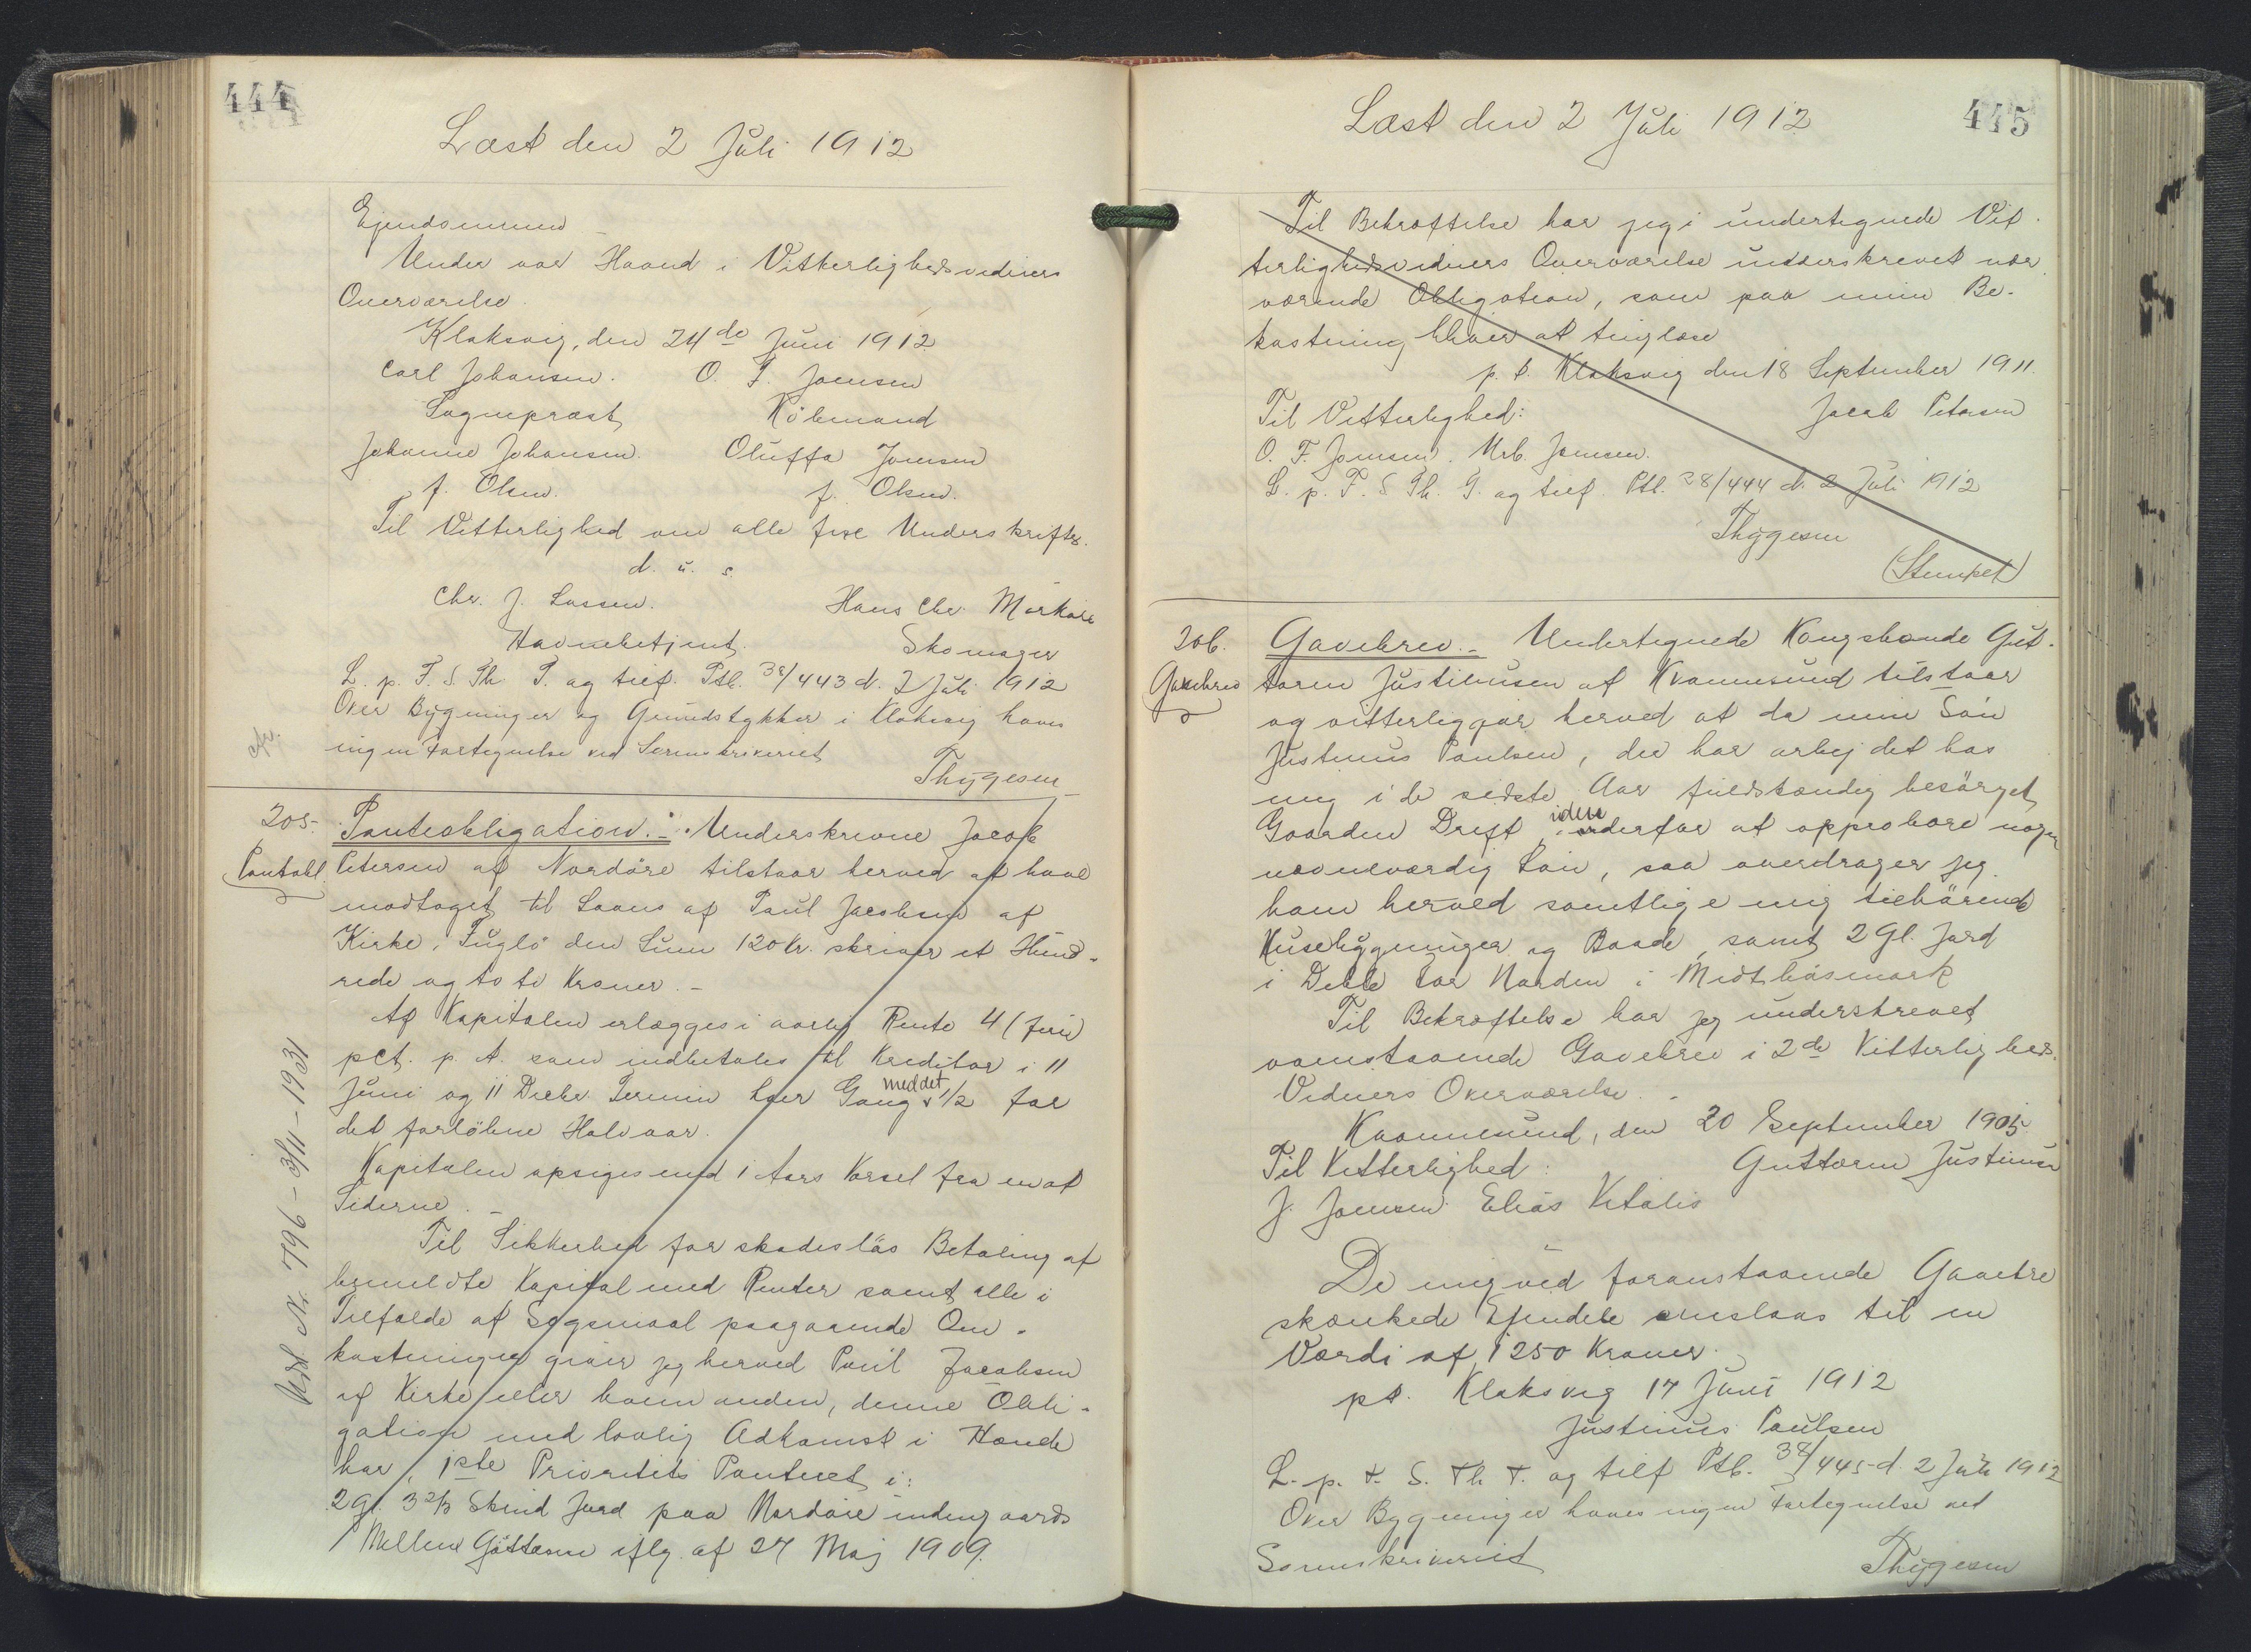 444
Læst den 2 Juli 1912
Ejendommen
Under vor Haand i Vitterlighedsvidners
Overværelse.
Klaksvig, den 24de Juni 1912
Carl Johansen. O. F. Joensen
Sognepræst Købmand
Johanne Johansen. Oluffa Joensen
f. Olsen. f. Olsen.
Til Vitterlighed om alle fire Underskrifter.
d. u. s.
Chr. J. Lassen. Hans Chr. Mørkøre
Havnebetjent. Skomager
L. p. F. S. Th. T. og tilf. Ptb. 38/443 d. 2 Juli 1912
Over Bygninger og Grundstykker i Klaksvig haves
ingen Fortegnelse ved Sorenskriveriet
Thygesen
205. Panteobligation. Underskrevne Jacob
Pantobl. Petersen af Nordöre tilstaar herved at have
modtaget til Laans af Paul Jacobsen af
Kirke, Fuglö den Sum 120 Kr. skriver et Hund-
rede og to ti Kroner.-
Af Kapitalen erlægges i aarlig Rente 4 (fire)
pct. p. A. som indbetales til Kreditor i 11
Juni og 11 Decbr. Termin hver Gang med det 1/2 for
det forløbne Halvaar.
Kapitalen opsiges med 1 Aars Varsel fra en af
Siderne.-
Til Sikkerhed for skadesløs Betaling af
bemeldte Kapital med Renter samt alle i
Tilfælde af Søgsmaal paagaaende Om-
kostninger giver jeg herved Paul Jacobsen
af Kirke eller hvem anden, denne Obli-
gation med lovlig Adkomst i Hænde
har, 1ste Prioritets Panteret i:
2 Gl. 3 2/3 Skind Jord paa Nordöre indengaards
Mellem Gøtterne iflg. af 27 Maj 1909.
Udsl. Nr. 796 - 3/11 - 1931
445
Læst den 2 Juli 1912
Til Bekræftelse har jeg i undertegnede Vit-
terlighedsvidners Overværelse underskrevet nær-
værende Obligation, som paa min Be-
kostning bliver at tinglæse
p. t. Klaksvig den 18 September 1911.
Til Vitterlighed: Jacob Petersen
O. F. Joensen. Mrb. Joensen.
L. p. F. S. Th. T. og tilf. Ptb. 38/444 d. 2 Juli 1912
Thygesen
(Stempel)
206. Gavebrev.- Undertegnede Kongsbonde Gut-
Gavebrev torm Justinusen af Kvannesund tilstaar
og vitterliggør herved at da min Søn
Justinus Poulsen, der har arbejdet hos
mig i de sidste Aar fuldstændig besørget
Gaarden Drift, uden derfor at oppebære nogen
nævneværdig Løn, saa overdrager jeg
ham herved samtlige mig tilhørende
Husebygninger og Baade, samt 2 Gl. Jord
i Deble for Norden i Midthúsmark
Til Bekræftelse har jeg underskrevet
ovenstaaende Gavebrev i 2de Vitterligheds-
Vidners Overværelse.-
Kvannesund, den 20 September 1905.
Til Vitterlighed: Guttorm Justinusen
J. Joensen. Elias Vitalis
De mig ved foranstaaende Gavebre
skænkede Ejendele ansla​as til en
Værdi af 1250 Kroner.
pt. Klaksvig 17 Juni 1912
Justinus Poulsen
L. p. F. S. Th. T. og tilf. Ptb. 38/445 d. 2 Juli 1912
Over Bygninger haves ingen Fortegnelse ved
Sorenskriveriet Thygesen